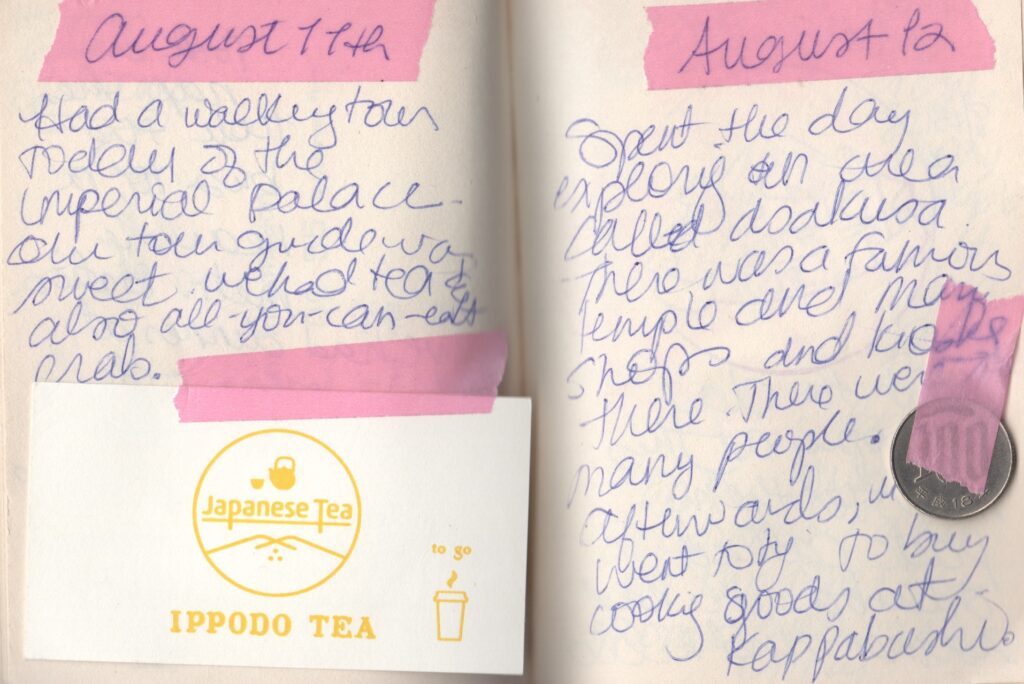 August 11th
Had a walking tour
today of the
imperial palace.
our tour guide was
sweet. we had tea &
also all-you-can-eat
crab.
Japanese Tea
to go
IPPODO TEA
August 12
Spent the day
exploring an area
called Asakusa.
there was a famous
temple and many
shops and kiosks
there. There were
many people.
afterwards, we
went to try to buy
cooking goods at
Kappabashi.
100
平成18年